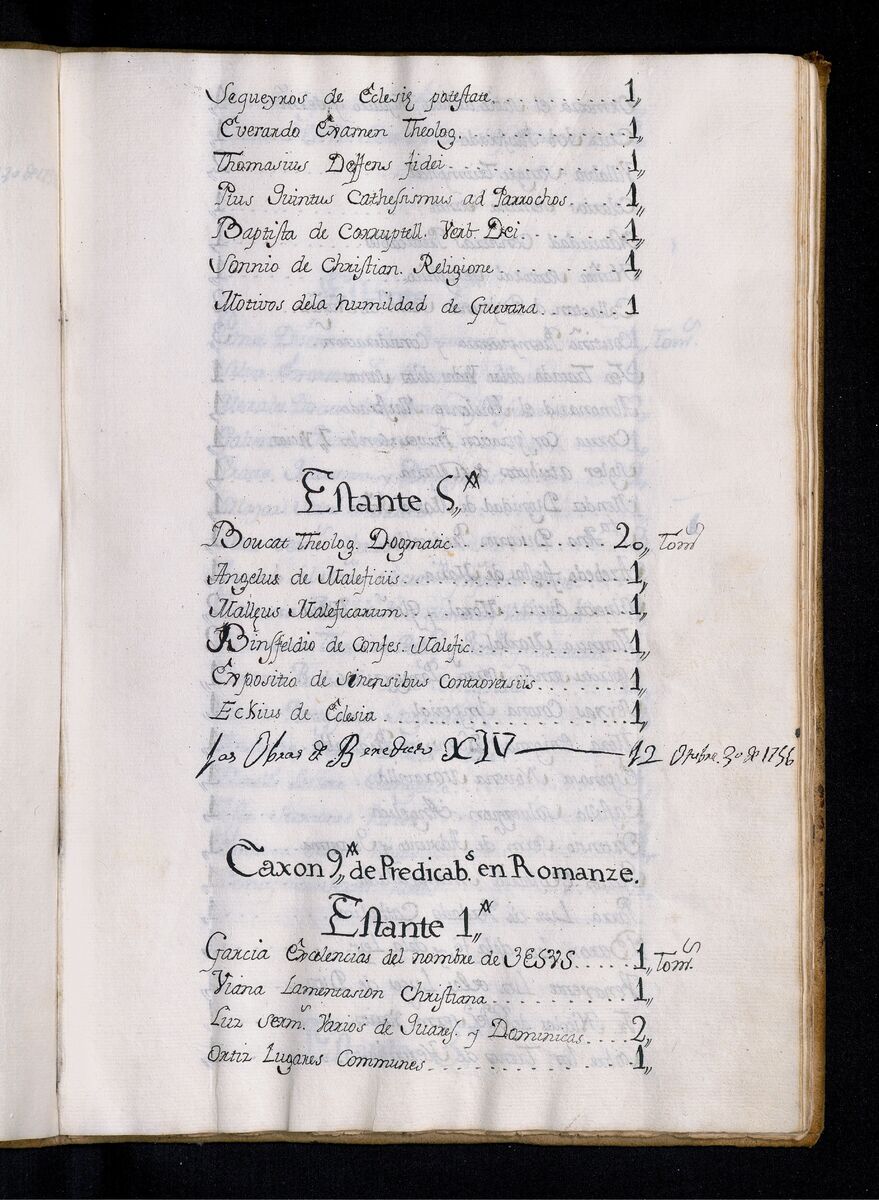 Sequeyros de Eclesię potestate. 1,,
Everardo Examen Theolog. 1,,
Thomasius Deffens fidei. 1,,
Pius Quintus Cathessismus ad Parrochos. 1,,
Baptista de Corruptell. Verb. Dei 1,,
Sonnio de Christian. Religione. 1,,
Motivos dela humildad de Guevara. 1
Estante 5,,ᴬ
Boucat Theolog. Dogmatic. 20,, Tomˢ
Angelus de Maleficiis. 1,,
Malleus Maleficarum. 1,,
Binsfeldio de Confes. Malefic. 1,,
Expositio de sinensibus Controversiis. 1,,
Eckius de Eclesia 1,,
Las Obras de Benedicto XIV 12 Otubre. 30 de 1756
Caxon 9,,ᴬ de Predicab.ˢ en Romanze.
Estante 1,,ᴬ
Garcia Excelencias del nombre de JESVS. 1,, Tom.ˢ
Viana Lamentasion Christiana 1,,
Luz Serm.ˢ Varios de Quares. y Dominicas 2,,
Ortiz Lugares Communes. 1,,